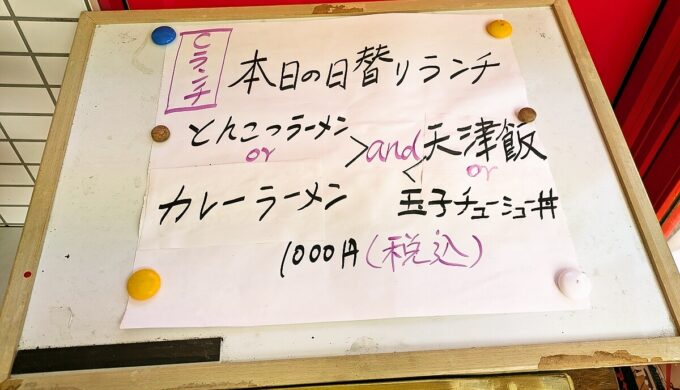 Cランチ
本日の日替りランチ
とんこつラーメン
or
カレーラーメン
and
天津飯
or
玉子チューシュー丼
1000円(税込)